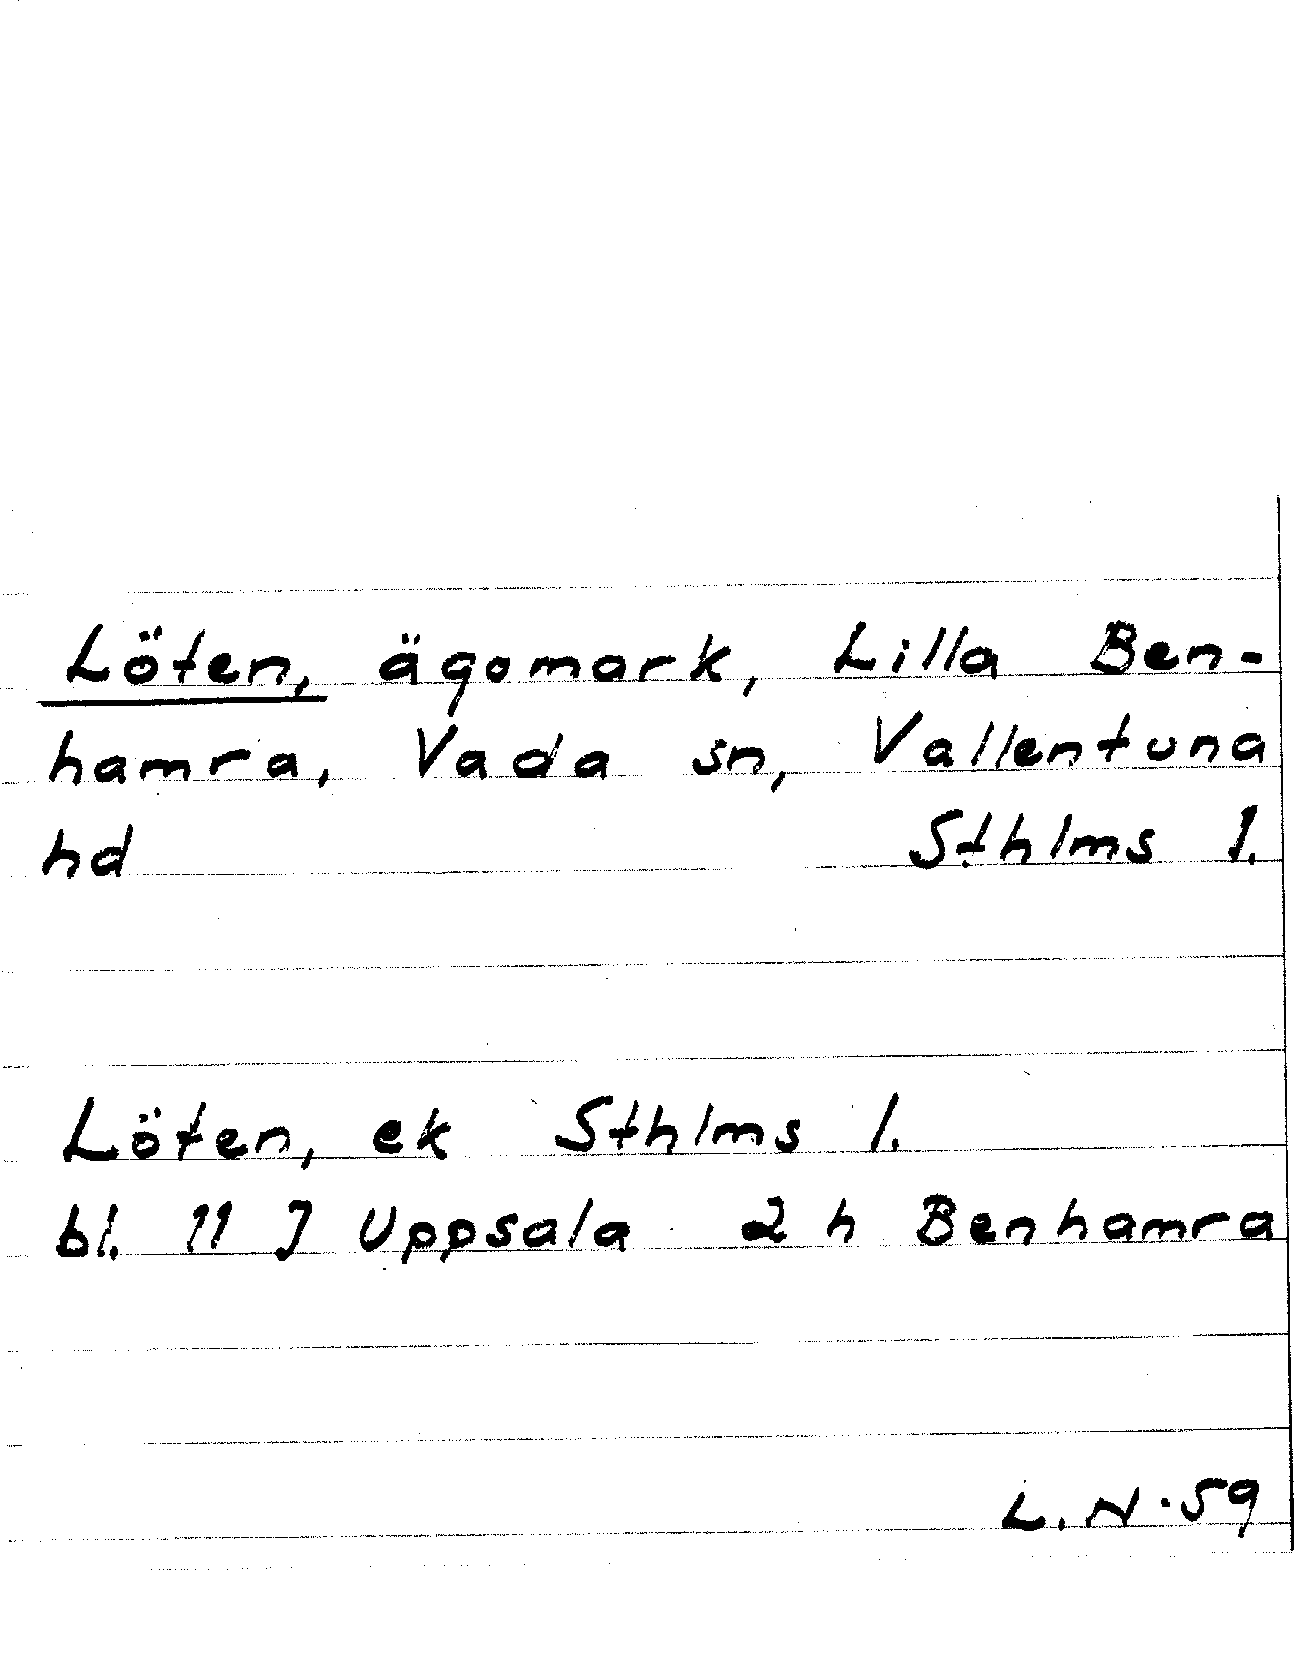 Löten, ägomark, Lilla Ben-
hamra, Vada sn, Vallentuna
hd Sthlms l.
Löten, ek Sthlms l.
bl. 11 J Uppsala 2 h Benhamra
L. N. 59